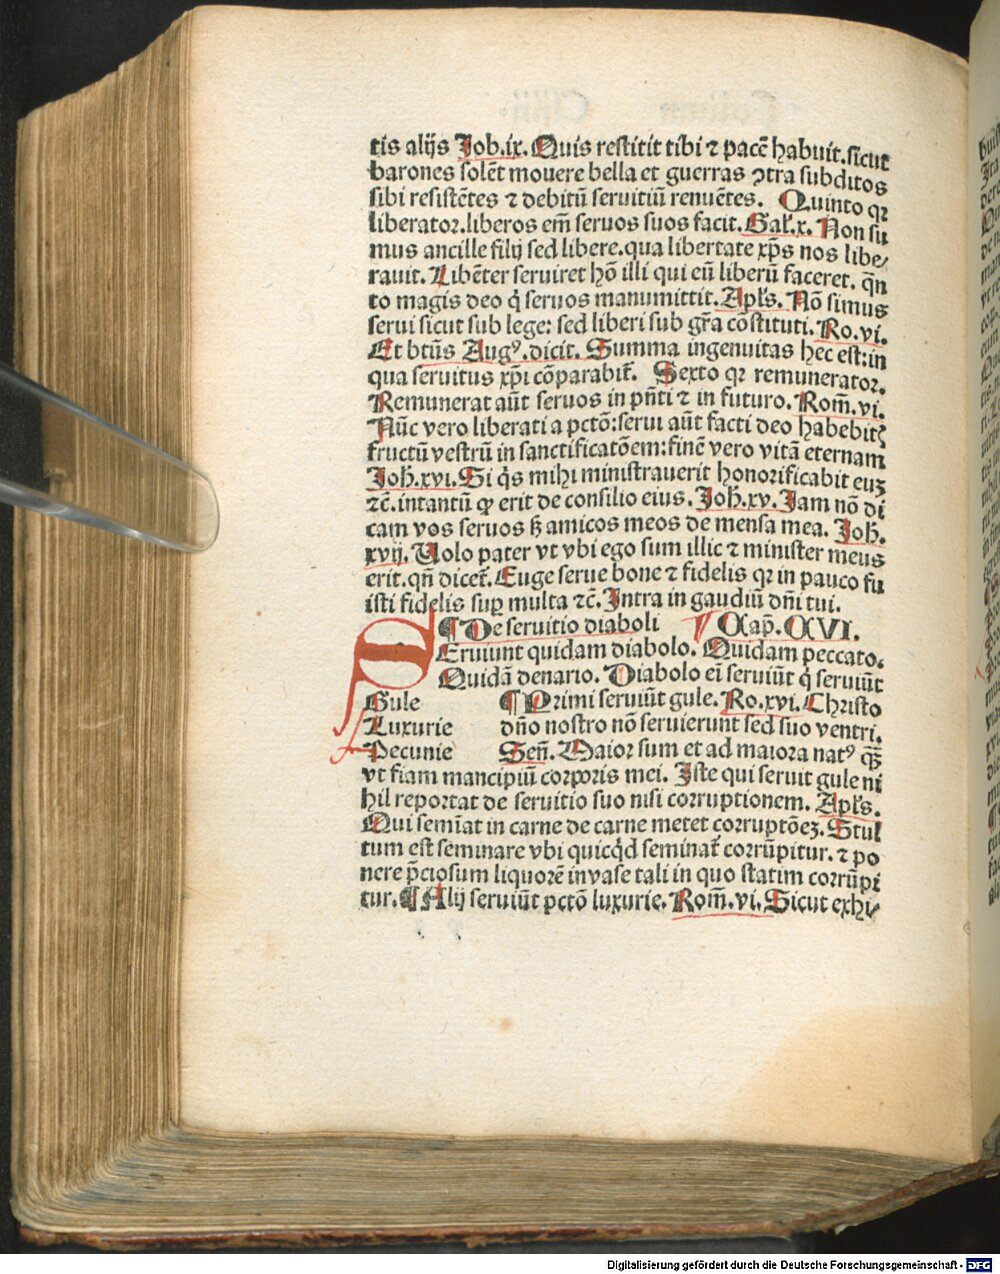 tis alijs Job.ix. Quis restitit tibi ⁊ pacē habuit. sicut
barones solēt mouere bella et guerras ꝯtra subditos
sibi resistētes ⁊ debitū seruitiū renuētes. Quinto qꝛ
liberator. liberos em̄ seruos suos facit. Gal̄.x. Non su
mus ancille filij sed libere. qua libertate xp̄s nos libe⸗
rauit. Libēter seruiret hō illi qui eū liberū faceret. qn̄
to magis deo q̇ seruos manumittit. Apl̄s. Nō simus
serui sicut sub lege: sed liberi sub gr̄a cōstituti. Ro.vi.
Et btūs Augꝰ. dicit. Summa ingenuitas hec est: in
qua seruitus xp̄i cōparabit̄. Sexto qꝛ remunerator.
Remunerat aūt seruos in pn̄ti ⁊ in futuro. Rom̄.vi.
Nūc vero liberati a pctō: serui aūt facti deo habebit̄
fructū vestrū in sanctificatōem: finē vero vitā eternam
Joh̄.xvi. Si q̇s mihi ministrauerit honorificabit euꝫ
⁊c̄. intantū ꝙ erit de consilio eius. Joh̄.xv. Jam nō di
cam vos seruos sꝫ amicos meos de mensa mea. Joh̄.
xvij. Uolo pater vt vbi ego sum illic ⁊ minister meus
erit. qn̄ dicet̄. Euge serue bone ⁊ fidelis qꝛ in pauco fu
isti fidelis suꝑ multa ⁊c̄. Intra in gaudiū dn̄i tui.
¶ De seruitio diaboli ¶ Cap̄. CXVI.
SEruiunt quidam diabolo. Quidam peccato.
Quidā denario. Diabolo ei seruiūt q̇ seruiūt
Gule ¶ Primi seruiūt gule. Ro.xvi. Christo
Luxurie dn̄o nostro nō seruierunt sed suo ventri.
Pecunie Sen̄. Maior sum et ad maiora natꝰ qꝫ
vt fiam mancipiū corporis mei. Iste qui seruit gule ni
hil reportat de seruitio suo nisi corruptionem. Apl̄s.
Qui semīat in carne de carne metet corruptōeꝫ. Stul
tum est seminare vbi quicq̇d seminat̄ corrūpitur. ⁊ po
nere p̄ciosum liquorē in vase tali in quo statim corrūpi
tur. ¶ Alij seruiūt pctō luxurie. Rom̄.vi. Sicut exhi⸗
Digitalisierung gefördert durch die Deutsche Forschungsgemeinschaft - DFG